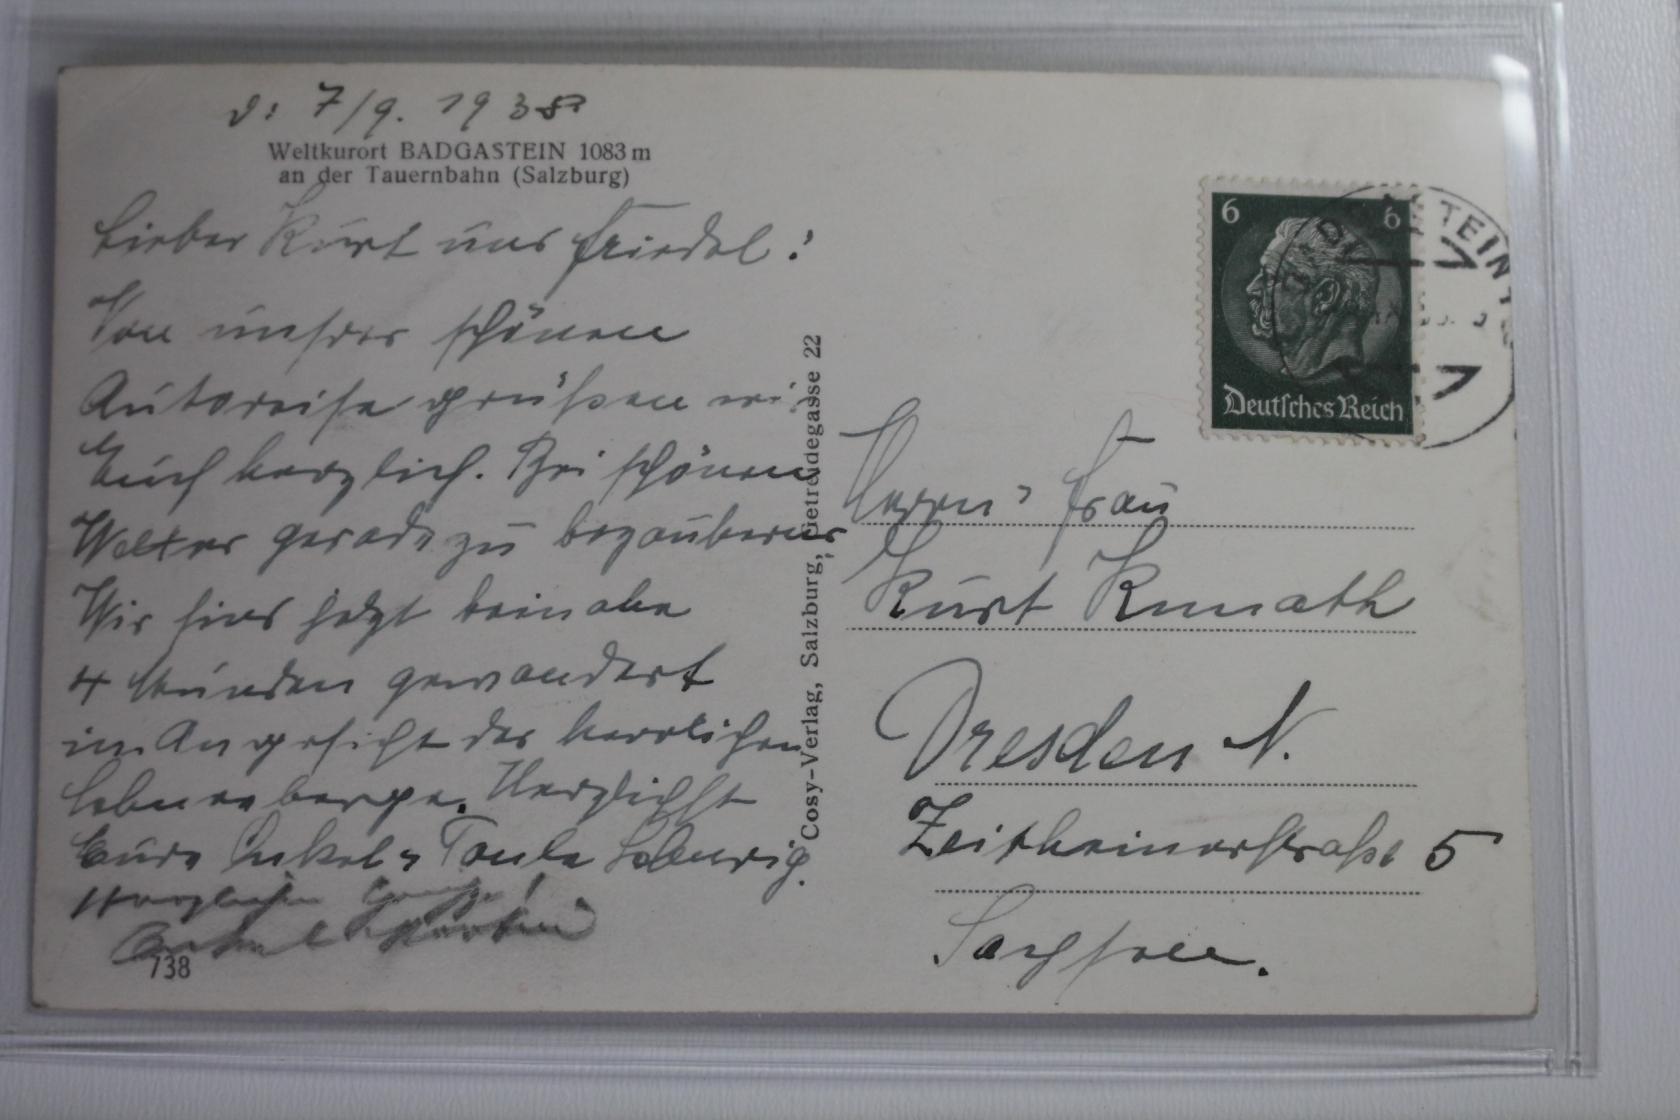 d: 7/9. 1938
Weltkurort BADGASTEIN 1083 m
an der Tauernbahn (Salzburg)
Lieber Kurt und Friedel!
Von unserer schönen
Autoreise grüßen wir
Euch herzlich. Bei schönem
Wetter geradezu bezaubernd
Wir sind jetzt beinahe
4 Stunden gewandert
im Angesicht der herrlichen
Herzlichst
Eure Onkel u Tante
Herzlichen
738
Cosy-Verlag, Salzburg, Getreidegasse 22
6 6
Deutsches Reich
Herrn u Frau
Kurt
Dresden N.
Zeithainerstraße 5
Sachsen.